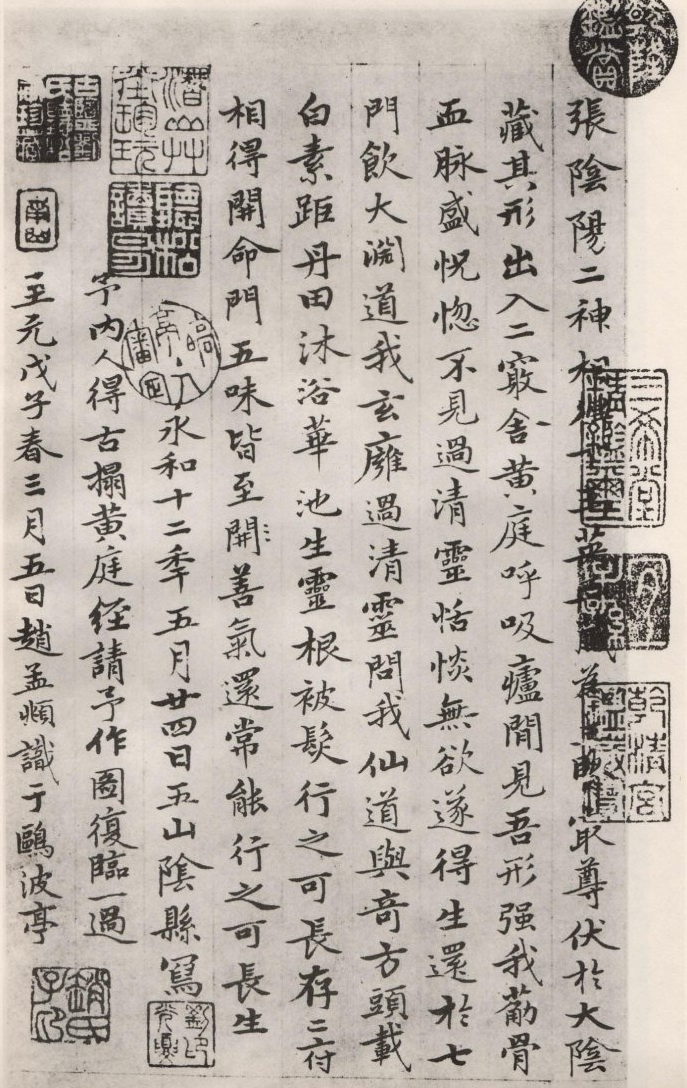 張陰陽二神相 為 取尊伏於大陰
藏其形出入二竅舍黄庭呼吸廬間見吾形强我筋骨
血脉盛怳惚不見過清靈恬惔無欲遂得生還於七
門飲大淵道我玄廱過清靈問我仙道與奇方頭載
白素距丹田沐浴華池生靈根被髮行之可長存二府
相得開命門五味皆至開善氣還常能行之可長生
永和十二年五月廿四日五山陰縣寫
予内人得古搨黄庭經請予作圖復臨一過
至元戊子春三月五日趙孟頫識于鷗波亭
乾隆鑑賞
三希堂
宜子孫
乾清宮
聽帖讀易
趙氏子印